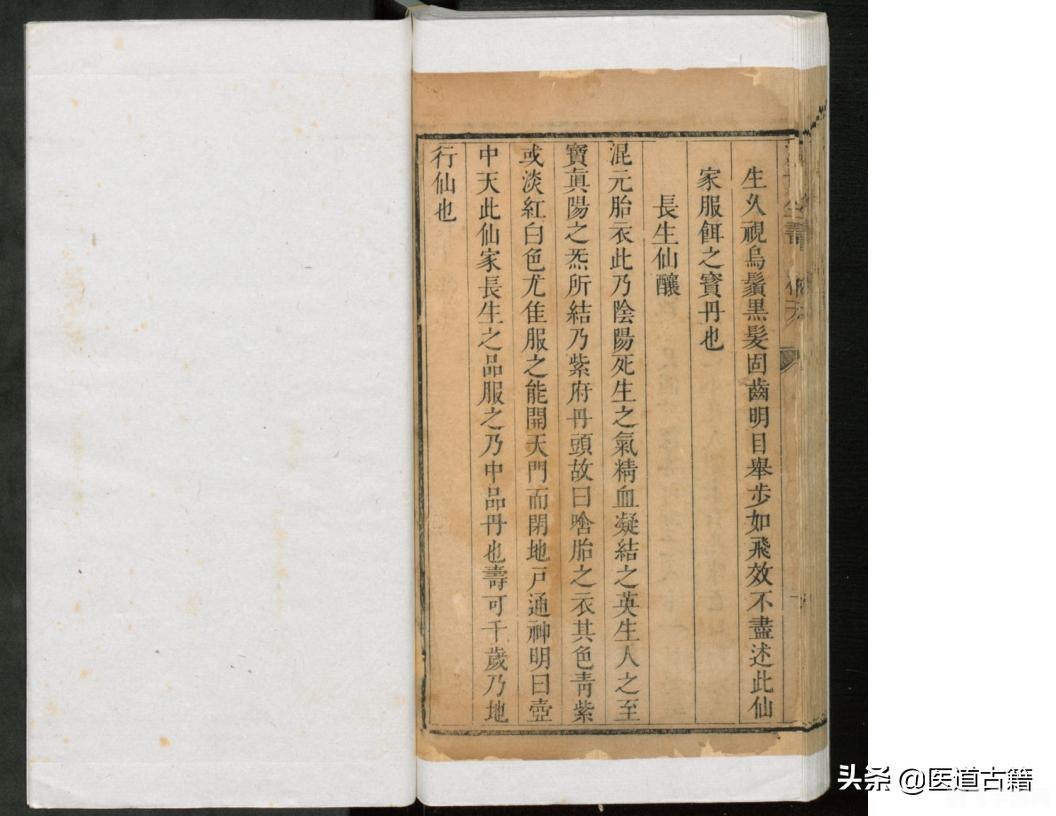 生久視烏鬚黒髪固齒明目舉步如飛效不盡述此仙
家服餌之寶丹也
長生仙釀
混元胎衣此乃陰陽死生之氣精血凝結之英生人之至
寶眞陽之炁所結乃紫府丹頭故曰啽胎之衣其色青紫
或淡紅白色尤佳服之能開天門而閉地戸通神明曰壺
中天此仙家長生之品服之乃中品丹也壽可千歲乃地
行仙也
头条 @医道古籍